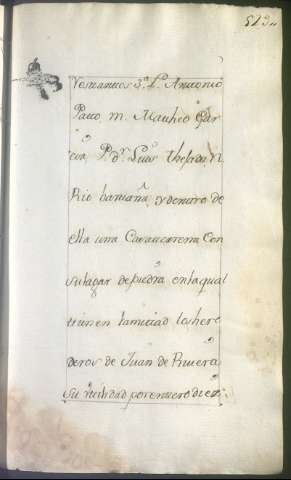 513
Vesmanuos 3ª L. Antonio
Pato, m. Matheo Gar
cia, P. dn. Luis Thesada, N.
Rio lamiaña, y dentro de
ella una Casa caxera con
su lagar de piedra en la qual
tienen la mitad los here
deros de Juan de Rivera
su utilidad por entero diez